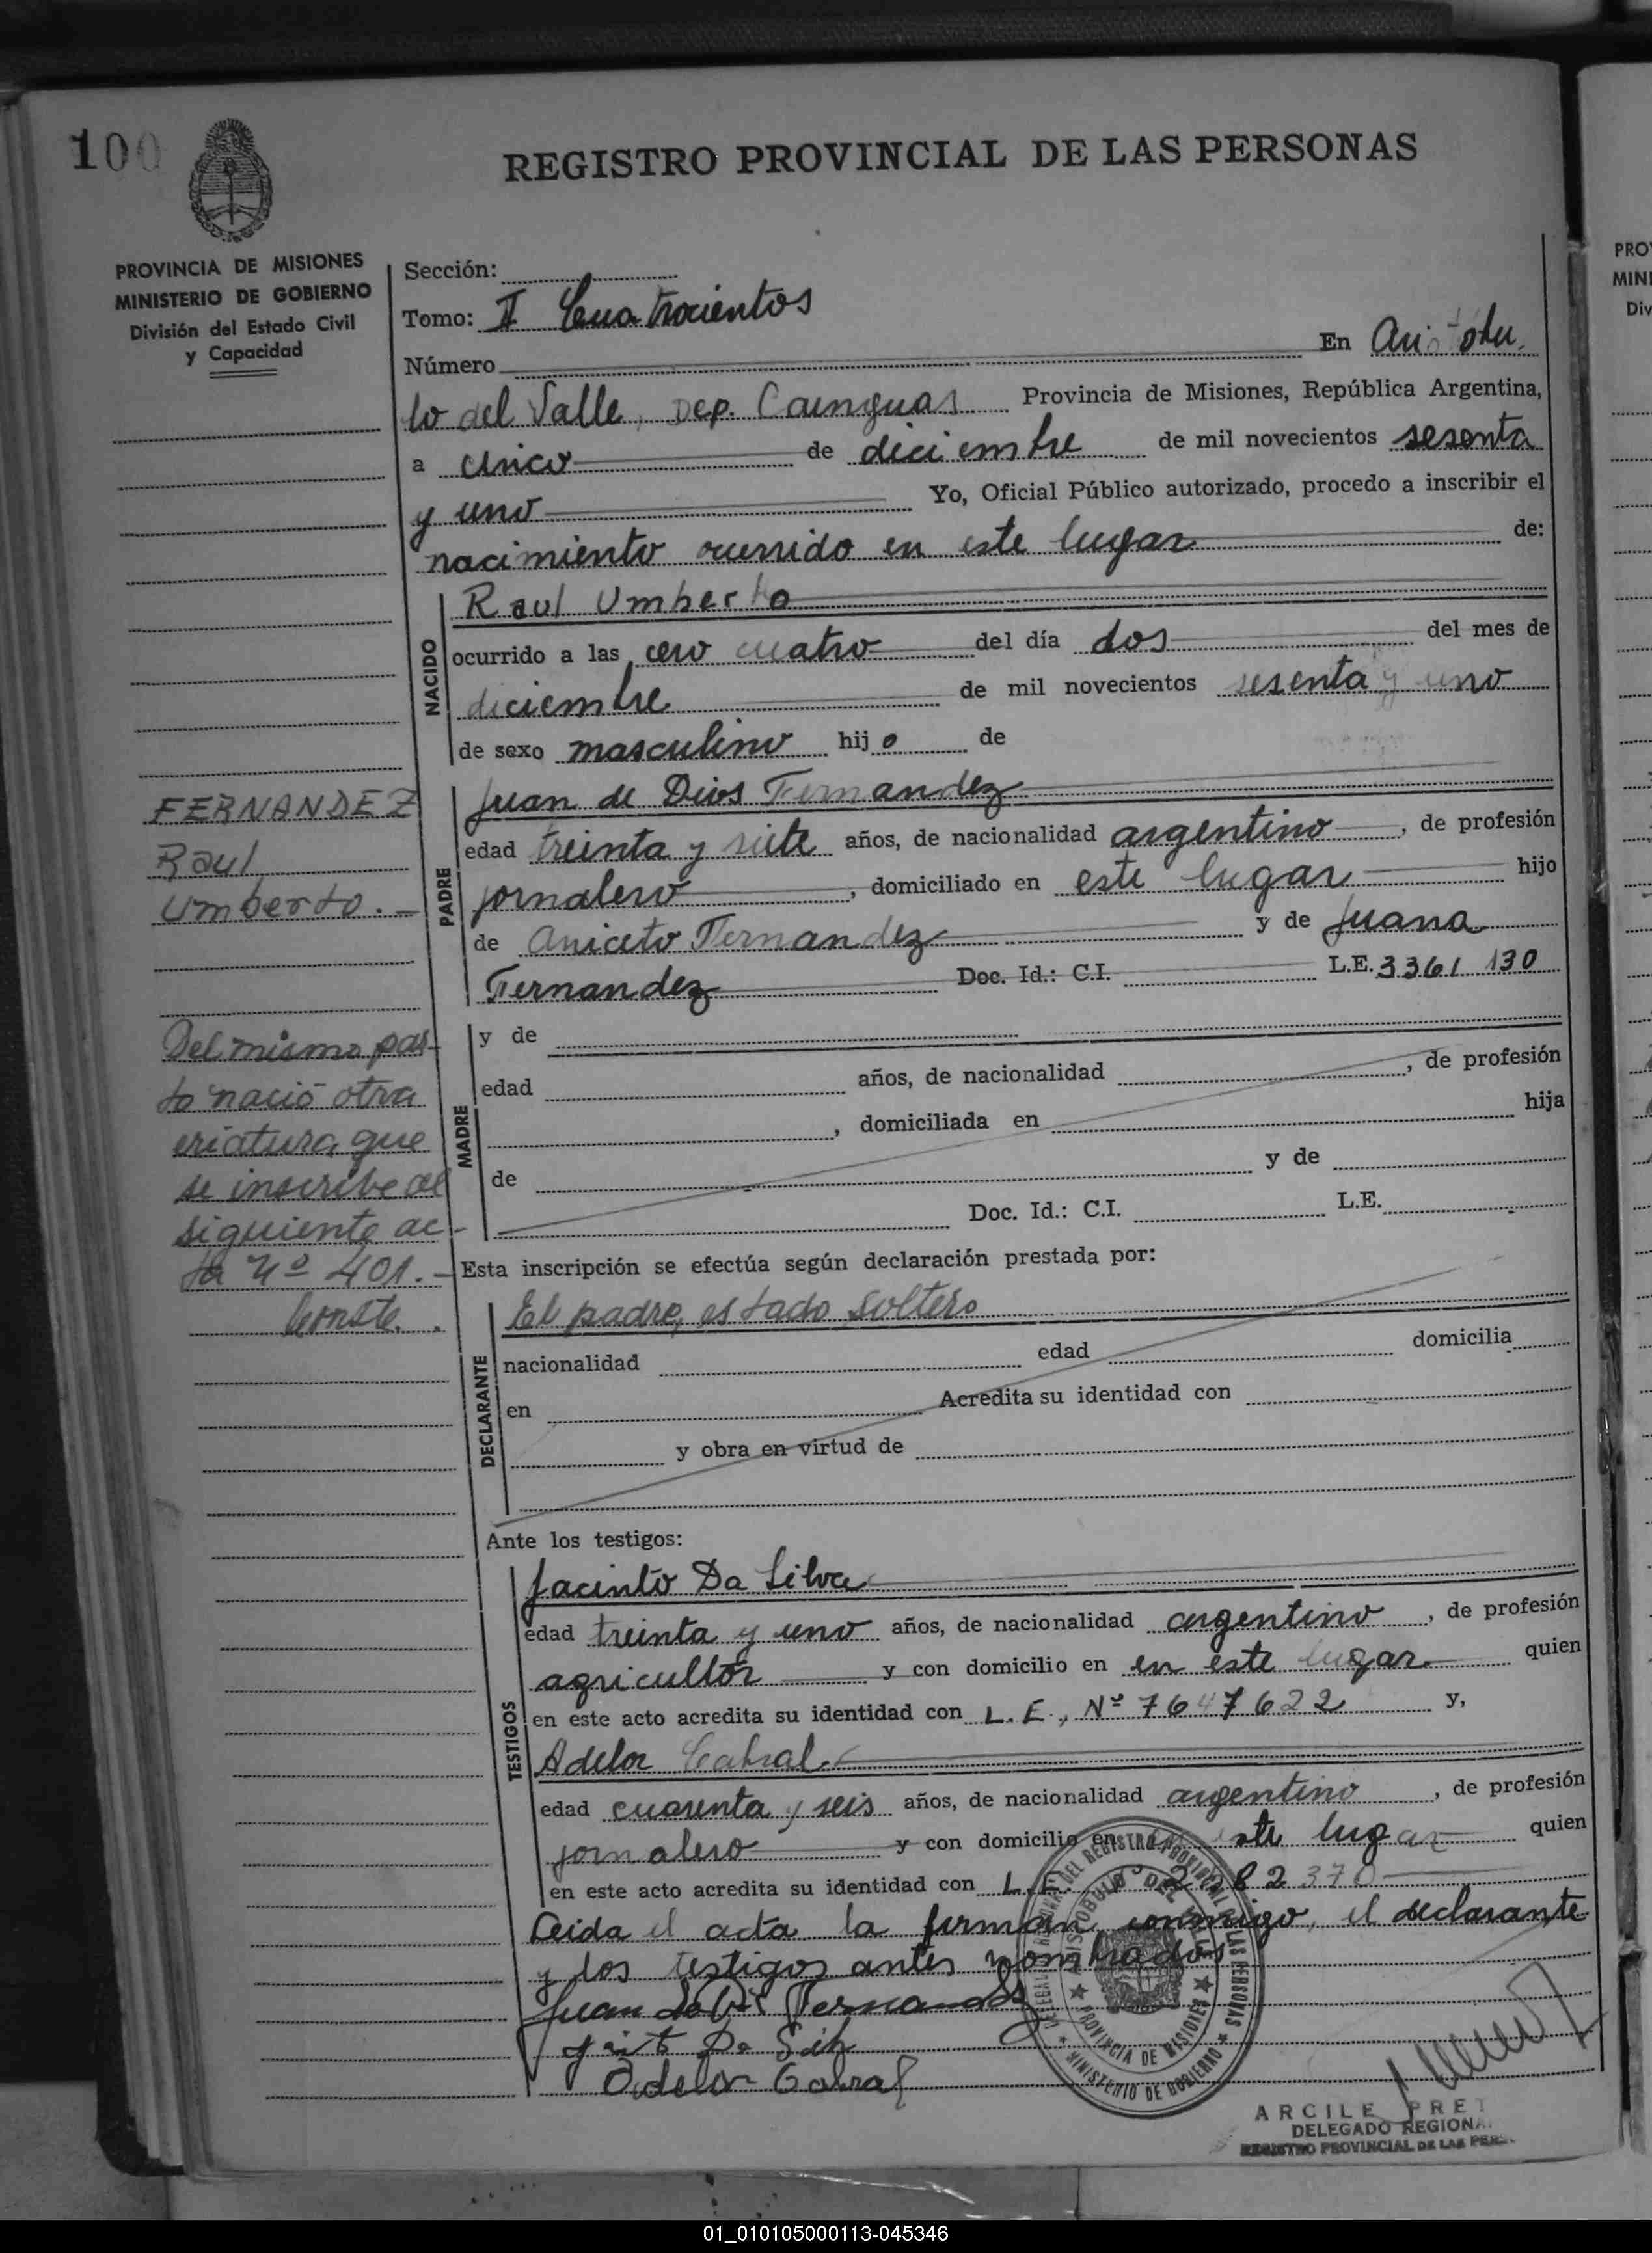 100
REGISTRO PROVINCIAL DE LAS PERSONAS
PROVINCIA DE MISIONES
MINISTERIO DE GOBIERNO
División del Estado Civil
y Capacidad
Sección:
Tomo: II Cuatrocientos
Número En Aristóbu
lo del Valle, Dep. Cainguas Provincia de Misiones, República Argentina,
a cinco de diciembre de mil novecientos sesenta
y uno Yo, Oficial Público autorizado, procedo a inscribir el
nacimiento ocurrido en este lugar de:
NACIDO
Raul Umberto
ocurrido a las cero cuatro del día dos del mes de
diciembre de mil novecientos sesenta y uno
de sexo masculino hijo de
FERNANDEZ
Raul
Umberto.-
PADRE
Juan de Dios Fernandez
edad treinta y siete años, de nacionalidad argentino, de profesión
jornalero, domiciliado en este lugar hijo
de Aniceto Fernandez y de Juana
Fernandez Doc. Id.: C.I. L.E. 3361130
Del mismo par-
to nació otra
criatura que
se inscribe al
siguiente ac-
ta Nº 401.-
Conste.
MADRE
y de
edad años, de nacionalidad , de profesión
, domiciliada en hija
de y de
Doc. Id.: C.I. L.E.
Esta inscripción se efectúa según declaración prestada por:
DECLARANTE
El padre, estado soltero
nacionalidad edad domicilia
en Acredita su identidad con
y obra en virtud de
Ante los testigos:
TESTIGOS
Jacinto Da Silva
edad treinta y uno años, de nacionalidad argentino, de profesión
agricultor y con domicilio en en este lugar quien
en este acto acredita su identidad con L.E., Nº 7647622 y,
Adelor Cabral
edad cuarenta y seis años, de nacionalidad argentino, de profesión
jornalero y con domicilio en este lugar quien
en este acto acredita su identidad con L.E.
Leida el acta la firman conmigo, el declarante
y los testigos antes nombrados
Juan de Dios Fernandez
Da Silva
Adelor Cabral
ARISTOBULO DEL VALLE
PROVINCIA DE MISIONES
MINISTERIO DE GOBIERNO
ARCILE PRET
DELEGADO REGIONA
REGISTRO PROVINCIAL DE LAS PER
PRO
MINI
Div
01_010105000113-045346